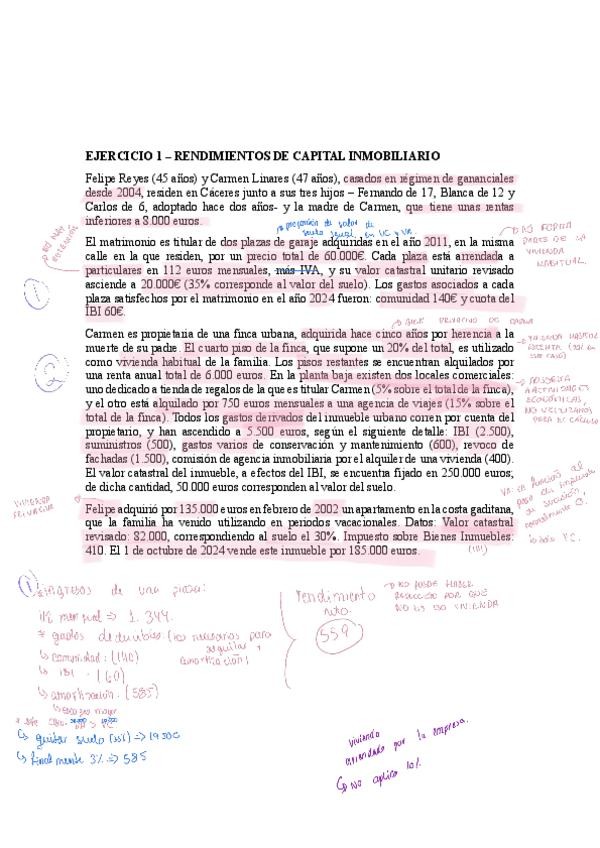 EJERCICIO 1 – RENDIMIENTOS DE CAPITAL INMOBILIARIO
Felipe Reyes (45 años) y Carmen Linares (47 años), casados en régimen de gananciales
desde 2004, residen en Cáceres junto a sus tres hijos – Fernando de 17, Blanca de 12 y
Carlos de 6, adoptado hace dos años- y la madre de Carmen, que tiene unas rentas
inferiores a 8.000 euros.
proporción de valor de
suelo igual en VC y VA
El matrimonio es titular de dos plazas de garaje adquiridas en el año 2011, en la misma
calle en la que residen, por un precio total de 60.000€. Cada plaza está arrendada a
particulares en 112 euros mensuales, más IVA, y su valor catastral unitario revisado
asciende a 20.000€ (35% corresponde al valor del suelo). Los gastos asociados a cada
plaza satisfechos por el matrimonio en el año 2024 fueron: comunidad 140€ y cuota del
IBI 60€.
NO FORMA
PARTE DE LA
VIVIENDA
HABITUAL.
1
BIEN PRIVATIVO DE CARMEN
Carmen es propietaria de una finca urbana, adquirida hace cinco años por herencia a la
muerte de su padre. El cuarto piso de la finca, que supone un 20% del total, es utilizado
como vivienda habitual de la familia. Los pisos restantes se encuentran alquilados por
una renta anual total de 6.000 euros. En la planta baja existen dos locales comerciales:
uno dedicado a tienda de regalos de la que es titular Carmen (5% sobre el total de la finca),
y el otro está alquilado por 750 euros mensuales a una agencia de viajes (15% sobre el
total de la finca). Todos los gastos derivados del inmueble urbano corren por cuenta del
propietario, y han ascendido a 5.500 euros, según el siguiente detalle: IBI (2.500),
suministros (500), gastos varios de conservación y mantenimiento (600), revoco de
fachadas (1.500), comisión de agencia inmobiliaria por el alquiler de una vivienda (400).
El valor catastral del inmueble, a efectos del IBI, se encuentra fijado en 250.000 euros;
de dicha cantidad, 50.000 euros corresponden al valor del suelo.
2
VIVIENDA HABITUAL
EXENTA
ACTIVIDADES
ECONÓMICAS,
VIVIENDA
PRIVATIVA
Felipe adquirió por 135.000 euros en febrero de 2002 un apartamento en la costa gaditana,
que la familia ha venido utilizando en periodos vacacionales. Datos: Valor catastral
revisado: 82.000, correspondiendo al suelo el 30%. Impuesto sobre Bienes Inmuebles:
410. El 1 de octubre de 2024 vende este inmueble por 185.000 euros.
(IBI)
1
* ingresos de una plaza:
mensual => 1.344.
* gastos deducibles: (los necesarios para
alquilar y
amortización)
↳ comunidad: (140)
↳ IBI: (60)
↳ amortización: (585)
↳ quitar suelo (35%) => 19500
↳ finalmente 3% => 585
rendimiento
neto.
559
NO PUEDE HABER
REDUCCIÓN POR QUE
NO ES UN VIVIENDA
vivienda
arrendada por la empresa.
↳ No aplico 10%.